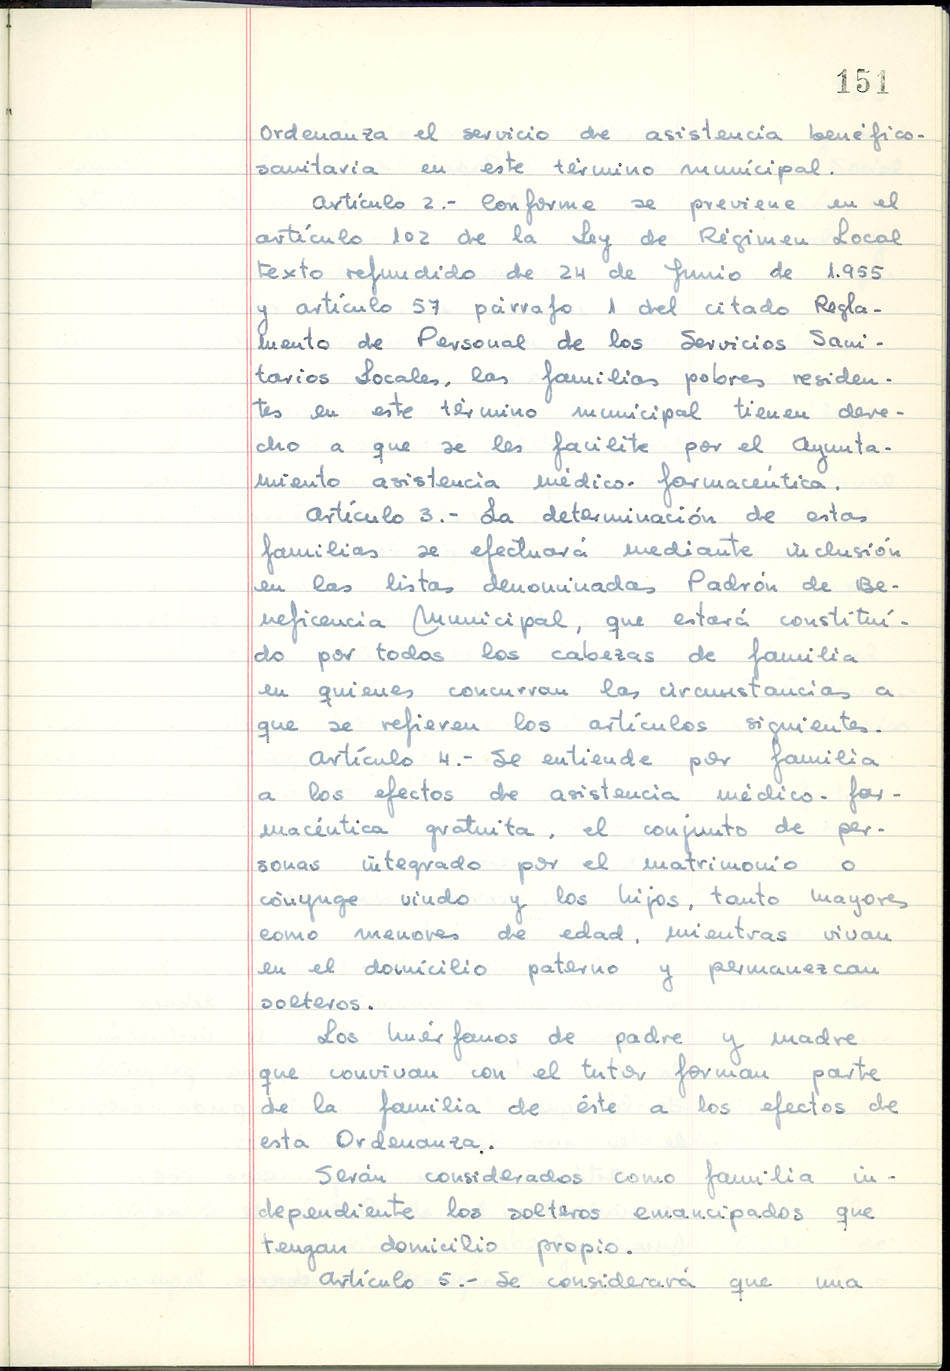 151
Ordenanza el servicio de asistencia benéfico-
sanitaria en este término municipal.
Artículo 2.- Conforme se previene en el
artículo 102 de la Ley de Régimen Local
texto refundido de 24 de Junio de 1.955
y artículo 57 párrafo 1 del citado Regla-
mento de Personal de los Servicios Sani-
tarios Locales, las familias pobres residen-
tes en este término municipal tienen dere-
cho a que se les facilite por el Ayunta-
miento asistencia médico-farmacéutica.
Artículo 3.- La determinación de estas
familias se efectuará mediante inclusión
en las listas denominadas Padrón de Be-
neficencia Municipal, que estará constituí-
do por todos los cabezas de familia
en quienes concurran las circunstancias a
que se refieren los artículos siguientes.
Artículo 4.- Se entiende por familia
a los efectos de asistencia médico-far-
macéutica gratuita, el conjunto de per-
sonas integrado por el matrimonio o
cónyuge viudo y los hijos, tanto mayores
como menores de edad, mientras vivan
en el domicilio paterno y permanezcan
solteros.
Los huérfanos de padre y madre
que convivan con el tutor forman parte
de la familia de éste a los efectos de
esta Ordenanza.
Serán considerados como familia in-
dependiente los solteros emancipados que
tengan domicilio propio.
Artículo 5.- Se considerará que una